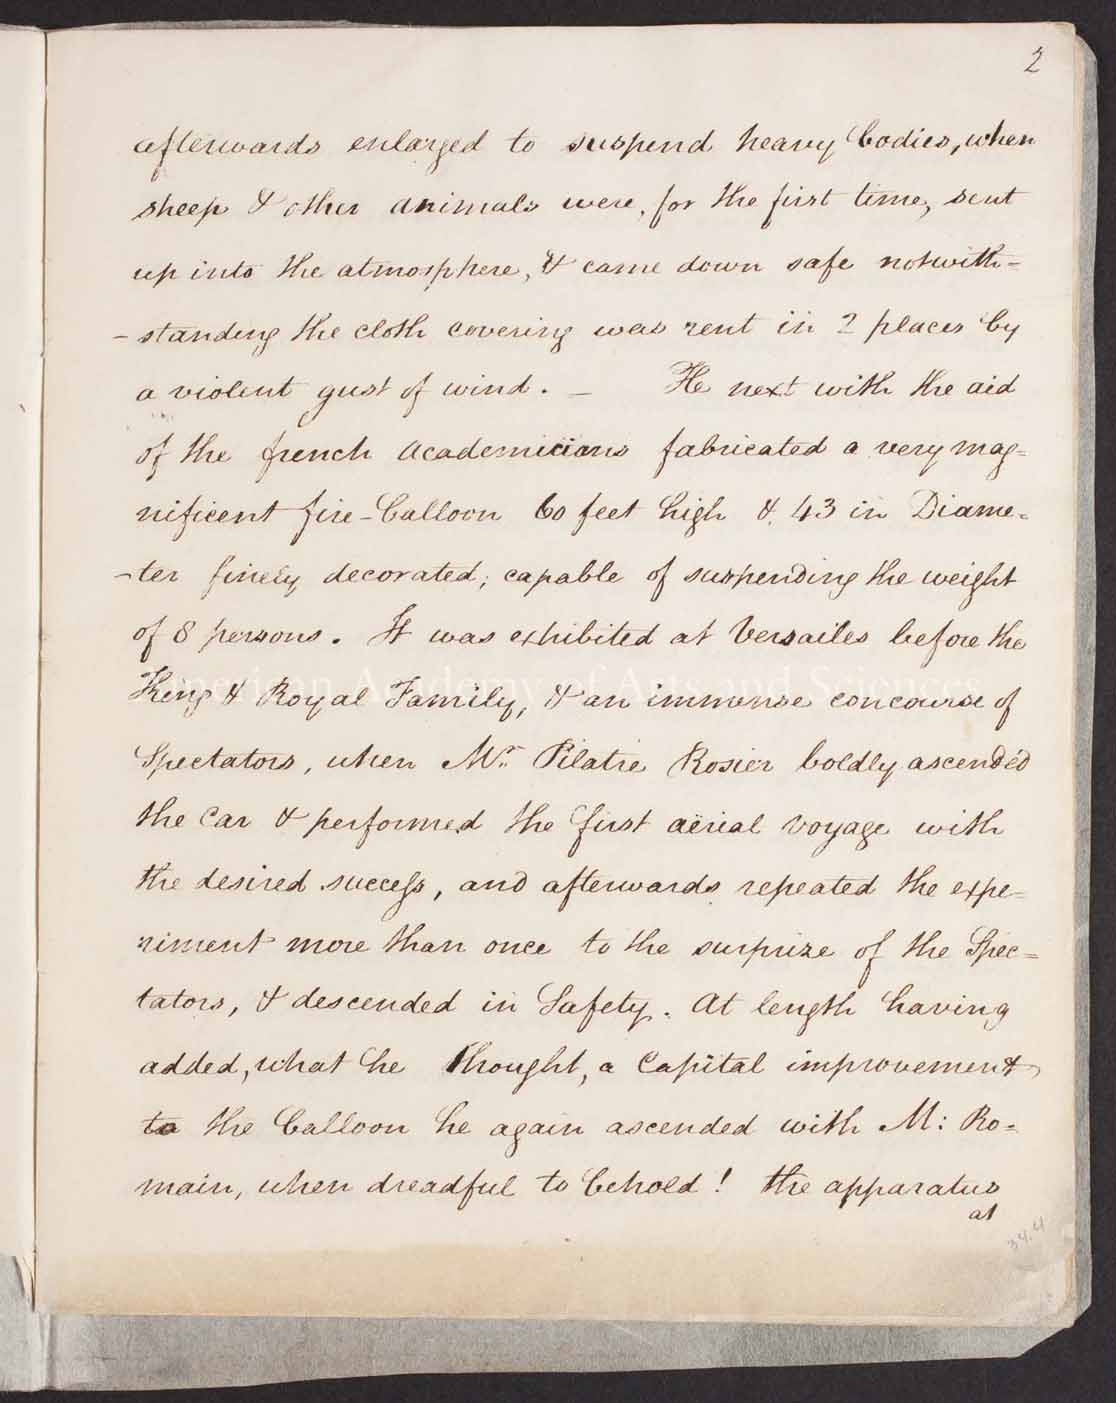 2
afterwards enlarged to suspend heavy bodies, when
sheep & other animals were, for the first time, sent
up into the atmosphere, & came down safe notwith=
-standing the cloth covering was rent in 2 places by
a violent gust of wind. — He next with the aid
of the french Academicians fabricated a very mag=
nificent fire-balloon 60 feet high & 43 in Diame=
-ter finely decorated; capable of suspending the weight
of 8 persons. It was exhibited at Versailes before the
King & Royal Family, & an immense concourse of
American Academy of Arts and Sciences
Spectators, when Mr. Pilatre Rosier boldly ascended
the Car & performed the first aërial voyage with
the desired success, and afterwards repeated the expe=
riment more than once to the surprize of the Spec=
tators, & descended in Safety. At length having
added, what he thought, a Capital improvement
to the balloon he again ascended with M: Ro=
main, when dreadful to behold! the apparatus
at
34.4